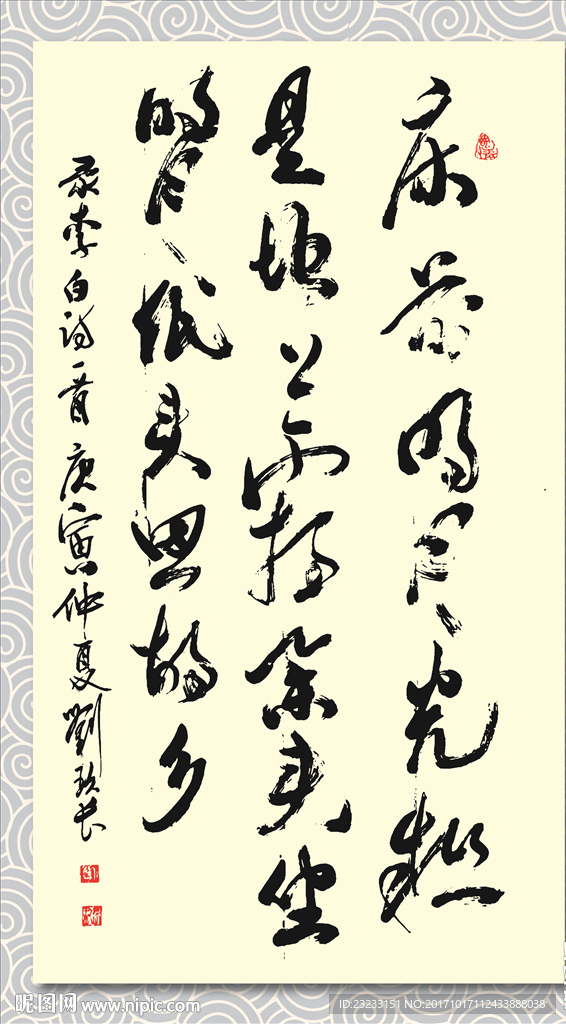 床前明月光疑
是地上霜举头望
明月低头思故乡
录李白诗一首庚寅仲夏劉玖长
昵图网 www.nipic.com
ID:23233151 NO:20171017112433888038